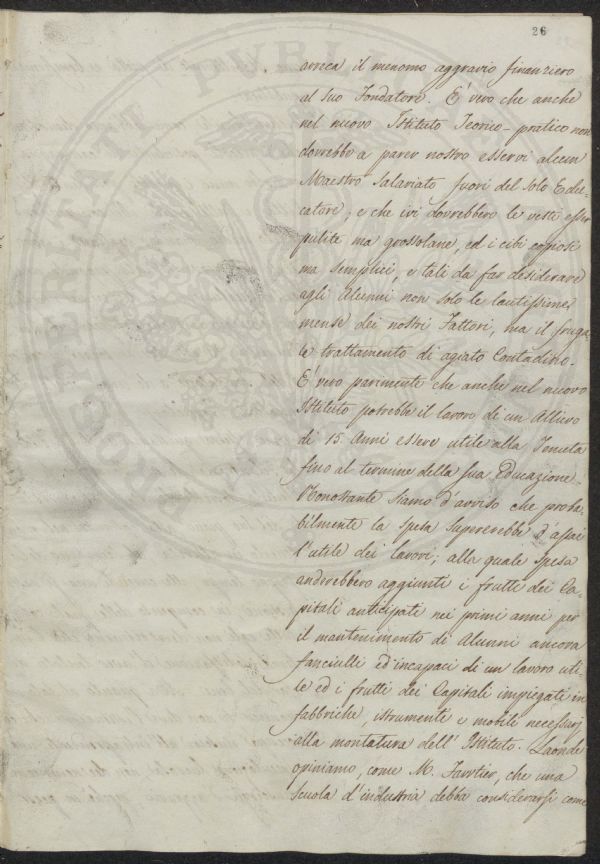 26
arreca il menomo aggravio finanziero
al suo Fondatore. É vero che anche
nel nuovo Istituto Teorico-pratico non
dovrebbe a parer nostro esservi alcun
Maestro salariato fuori del solo Edu-
catore; e che ivi dovrebbero le vesti esser
pulite ma grossolane, ed i cibi copiosi
ma semplici, e tali da far desiderare
agli Alunni non solo le lautissime
mense dei nostri Fattori, ma il fruga-
le trattamento di agiato Contadino.
É vero parimente che anche nel nuovo
Istituto potrebbe il lavoro di un Allievo
di 15 Anni essere utile alla Tenuta
fino al termine della sua Educazione.
Nonostante siamo d'avviso che proba-
bilmente la spesa supererebbe d'assai
l'utile dei lavori; alla quale spesa
anderebbero aggiunti i frutti dei Ca-
pitali anticipati nei primi anni per
il mantenimento di Alunni ancora
fanciulli ed incapaci di un lavoro uti-
le ed i frutti dei Capitali impiegati in
fabbriche, istrumenti e mobili necessarj
alla montatura dell'Istituto. Laonde
opiniamo, come M. , che una
scuola d'industria debba considerarsi come